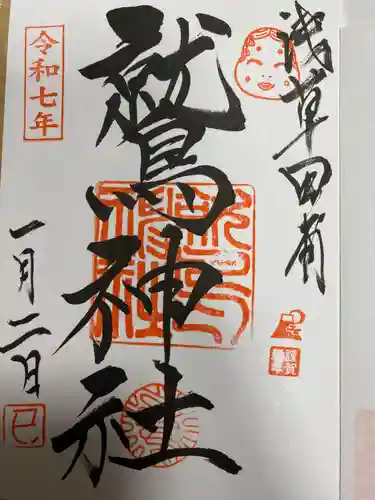 浅草田甫
鷲神社
令和七年
一月二日
巳